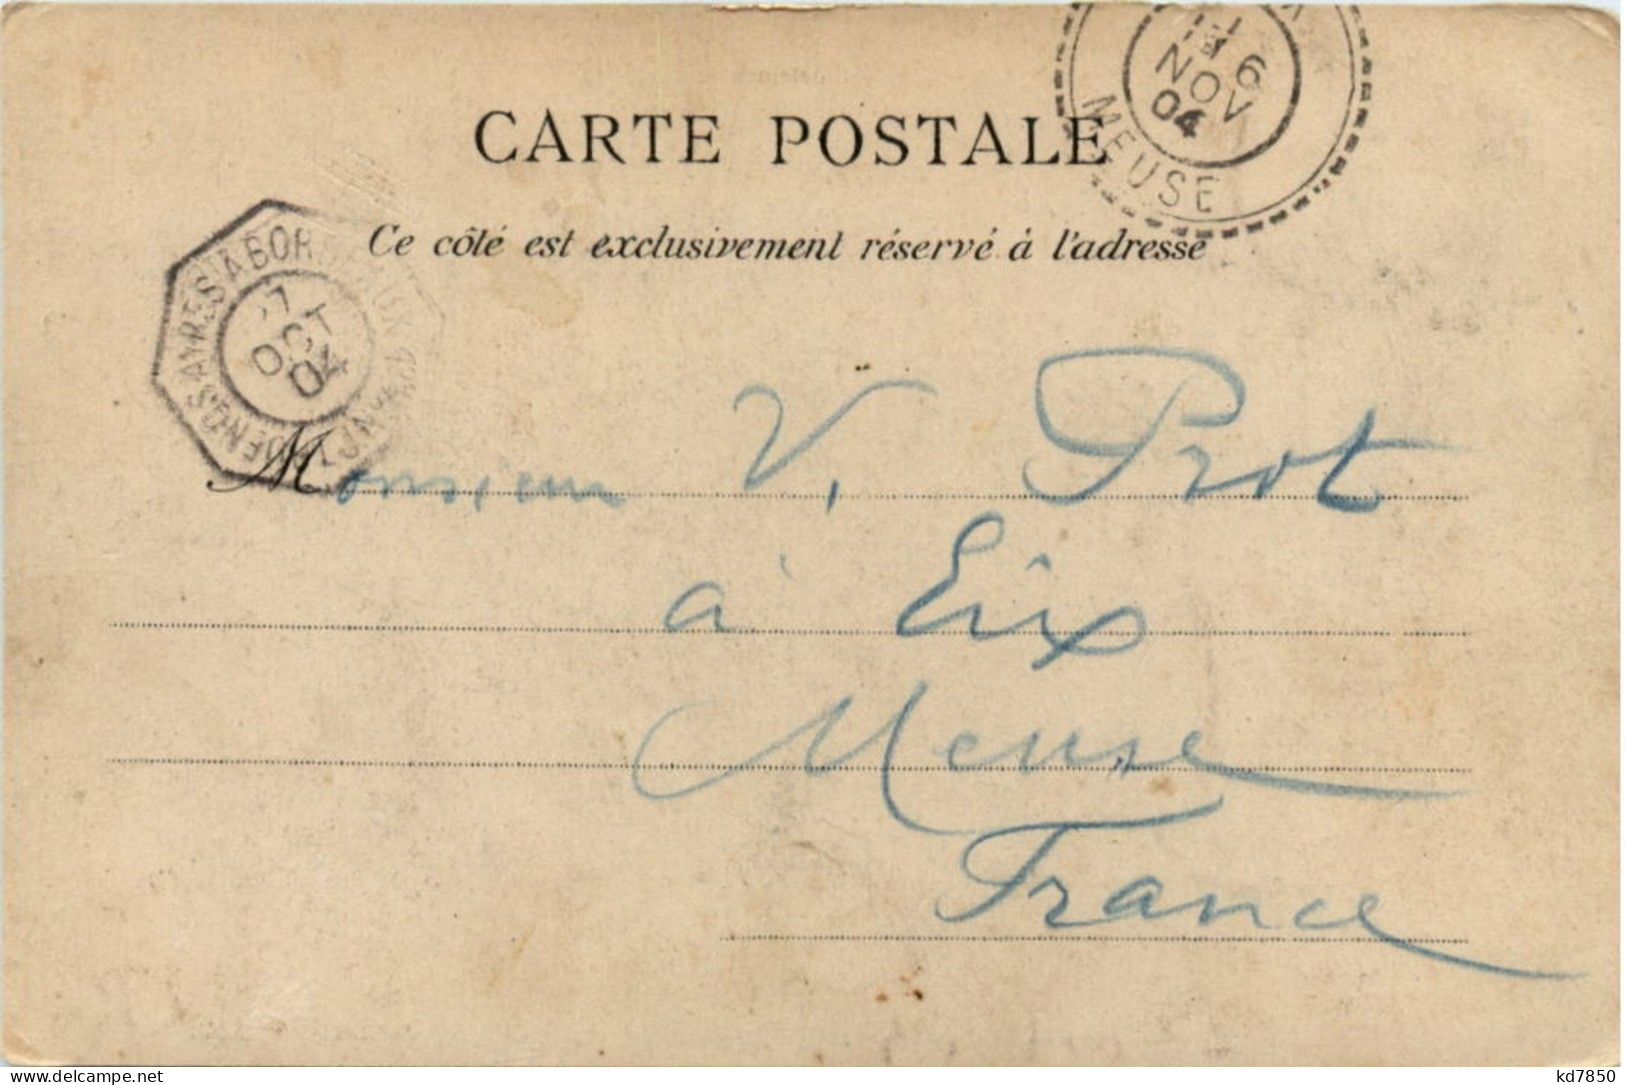 CARTE POSTALE
Ce côté est exclusivement réservé à l'adresse
6
NOV
04
MEUSE
BUENOS-AYRES A BOR
OCT
04
Monsieur V. Prot
à Eix
Meuse
France
kd7850